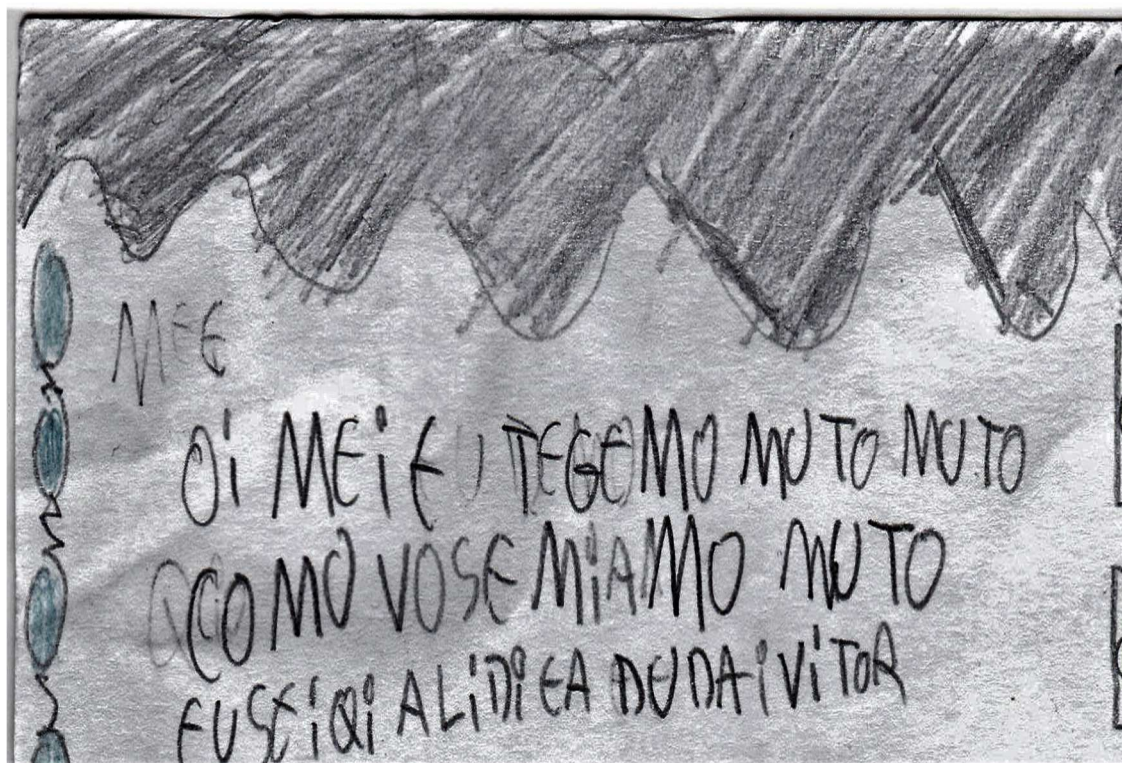 MEE
OI MEI EU TEGEMO MUTO MUTO
COMO VOSE MIAMO MUTO
EU SEI QI ALIDI EA DUDA I VITOR